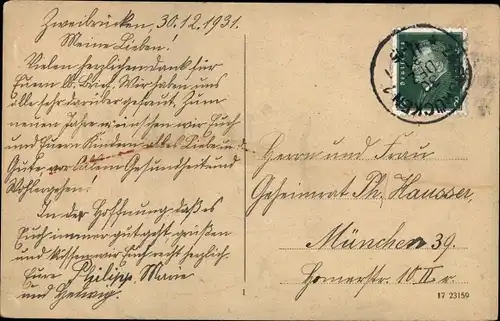 Zweibrücken, 30.12.1931.
Meine Lieben!
Vielen herzlichen Dank für
Euern lb. Brief. Wir haben uns
alle sehr darüber gefreut. Zum
neuen Jahre wünschen wir Euch
und Euern Kindern alles Liebe u.
Gute, vor allem Gesundheit und
Wohlergehen.
In der Hoffnung, daß es
Euch immer gut geht, grüßen
und küssen wir Euch recht herzlich
Eure Philipp, Marie
und Hedwig.
BRÜCKEN
Herrn und Frau
Geheimrat Ph. Hausser,
München 39.
Homerstr. 10 II r.
17 23159